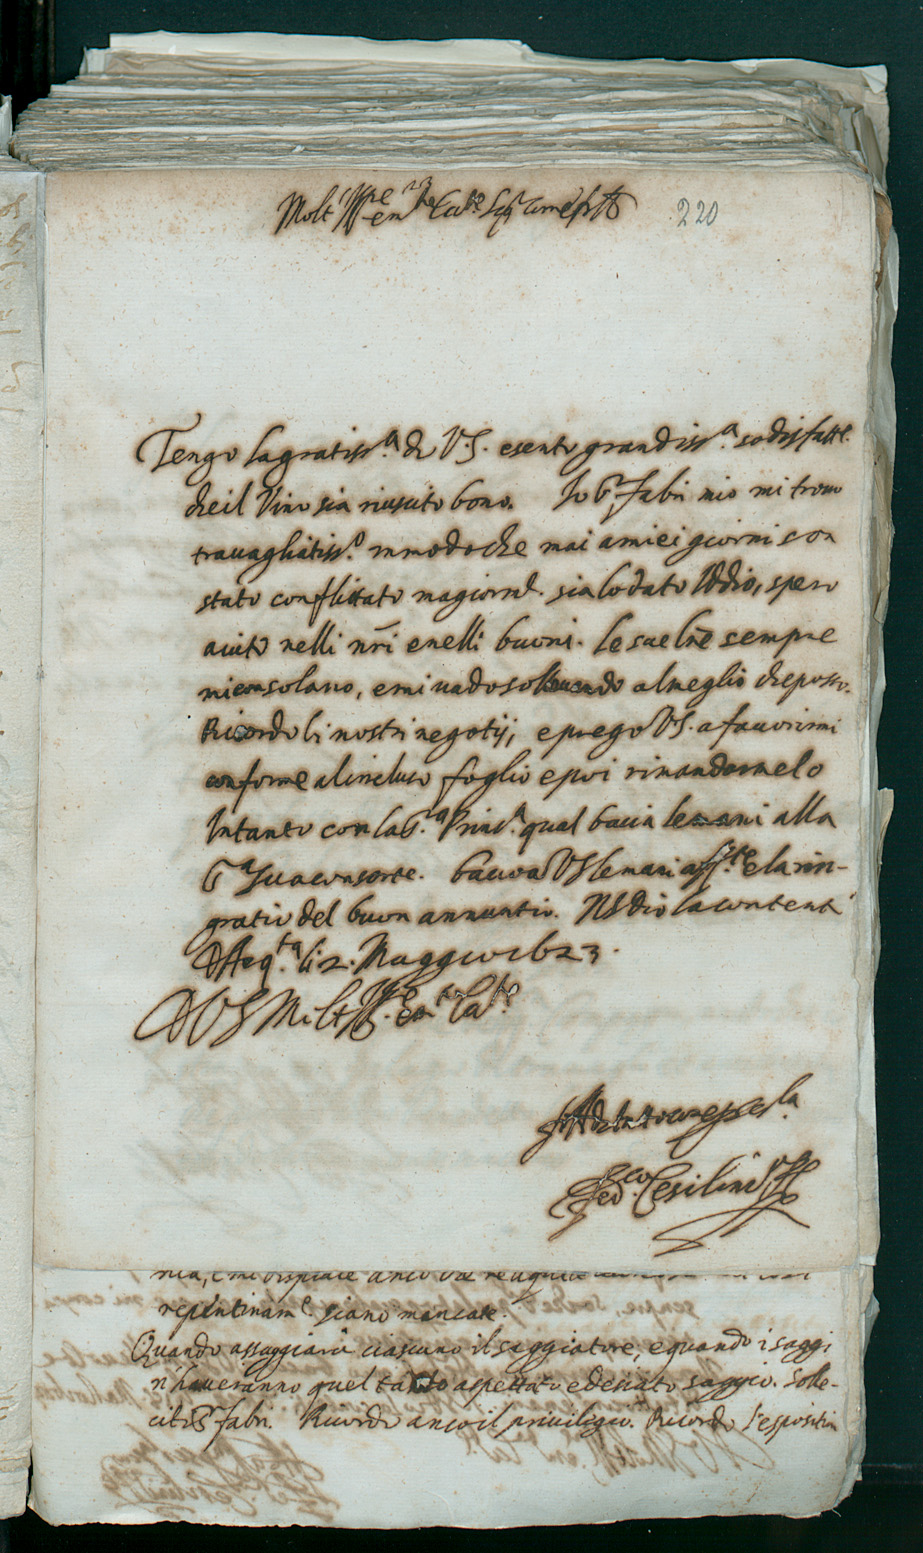 Molt Ill.re 220
Tengo la gratiss.a di V.S. e sento grandiss.a sodisfatt.e
che il Vino sia riuscito bono. Io S.r Fabri mio mi trovo
travagliatiss.o in modo che mai a miei giorni son
stato conflittato magiorm.e. sia lodato Iddio, spero
aiuto nelli nr̃i e nelli buoni. Le sue lr̃e sempre
mi consolano, e mi vado sollevando al meglio che posso.
Ricordo li nostri negotij, e prego V.S. a favorirmi
conforme al incluso foglio e poi rimandarmelo
Intanto con la S.a Princ.a qual bacia le mani alla
S.a Sua consorte. bacio a V.S. le mani aff.te e la rin-
gratio del buon annuntio. N.S. dio la contenti
D'Acq.ta li 2. Maggio 1623.
D V S Molt Ill.re
Fed.co Cesi Linc.o P.
repentinam.e siano mancate.
Quando assaggiarà ciascuno il saggiatore, e quando i saggi
n'haveranno quel tanto aspettato e desiato saggio. Solle-
citi S.r Fabri. Ricordo anco il privilegio. Ricordo l'espositin